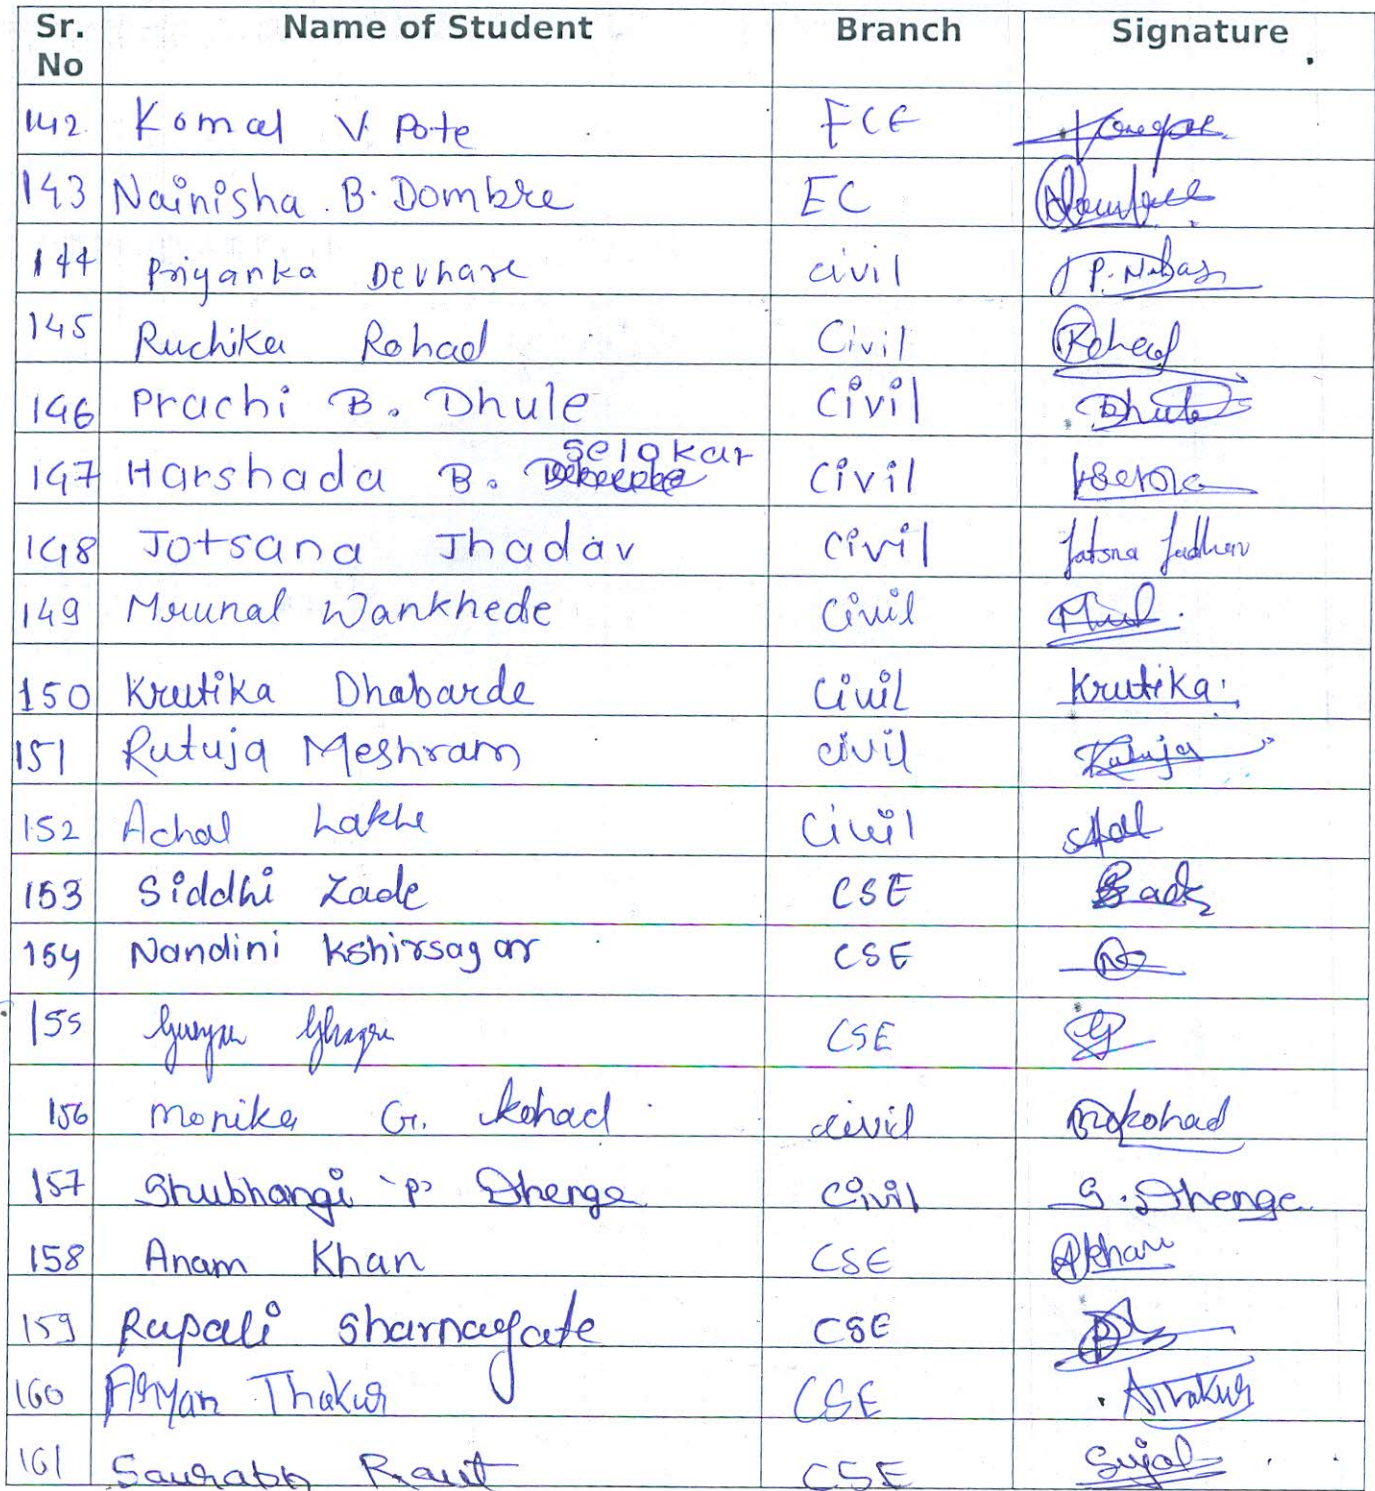 Sr. No Name of Student Branch Signature
142 Komal V. Pote ECE
143 Nainisha . B. Dombre EC
144 Priyanka Devhare civil
145 Ruchika Rohad Civil Rohad
146 Prachi B. Dhule Civil Dhule
147 Harshada B. Selokar Civil
148 Jotsana Jhadav Civil Jotsna Jadhav
149 Mrunal Wankhede Civil
150 Krutika Dhabarde Civil Krutika
151 Rutuja Meshram civil Rutuja
152 Achal Lakhe Civil
153 Siddhi Zade CSE
154 Nandini Kshirsagar CSE
155 CSE
156 Monika G. Kohad civil Mokohad
157 Shubhangi P Dhenge Civil S. Dhenge
158 Anam Khan CSE AKhan
159 Rupali Sharnagate CSE
160 Aryan Thakur CSE AThakur
161 Saurabh Raut CSE Sujal